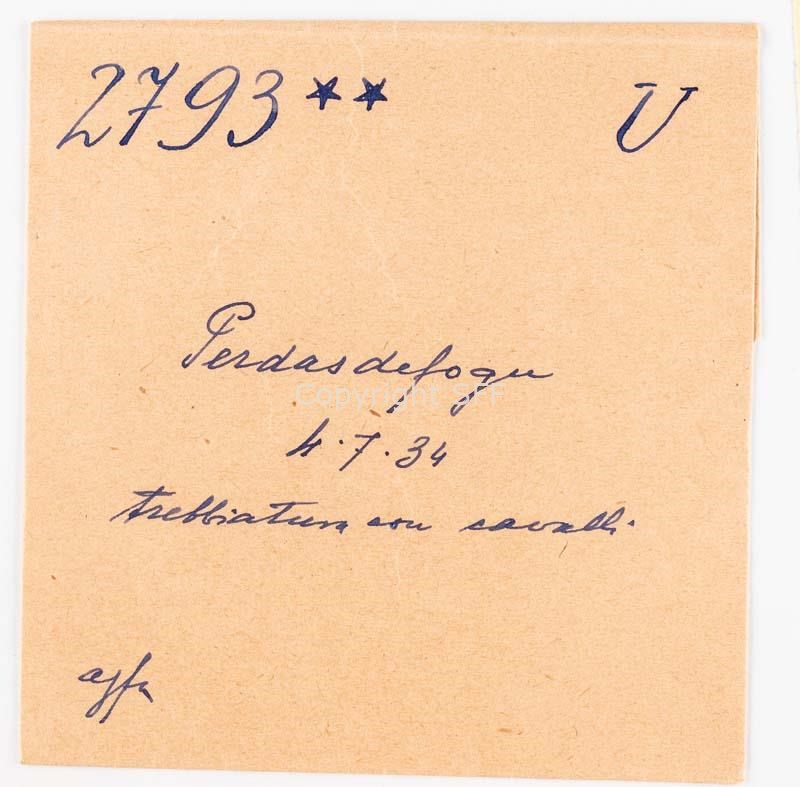 2793** U
Perdasdefogu
Copyright SFF
4.7.34
trebbiatura con cavalli
agfa